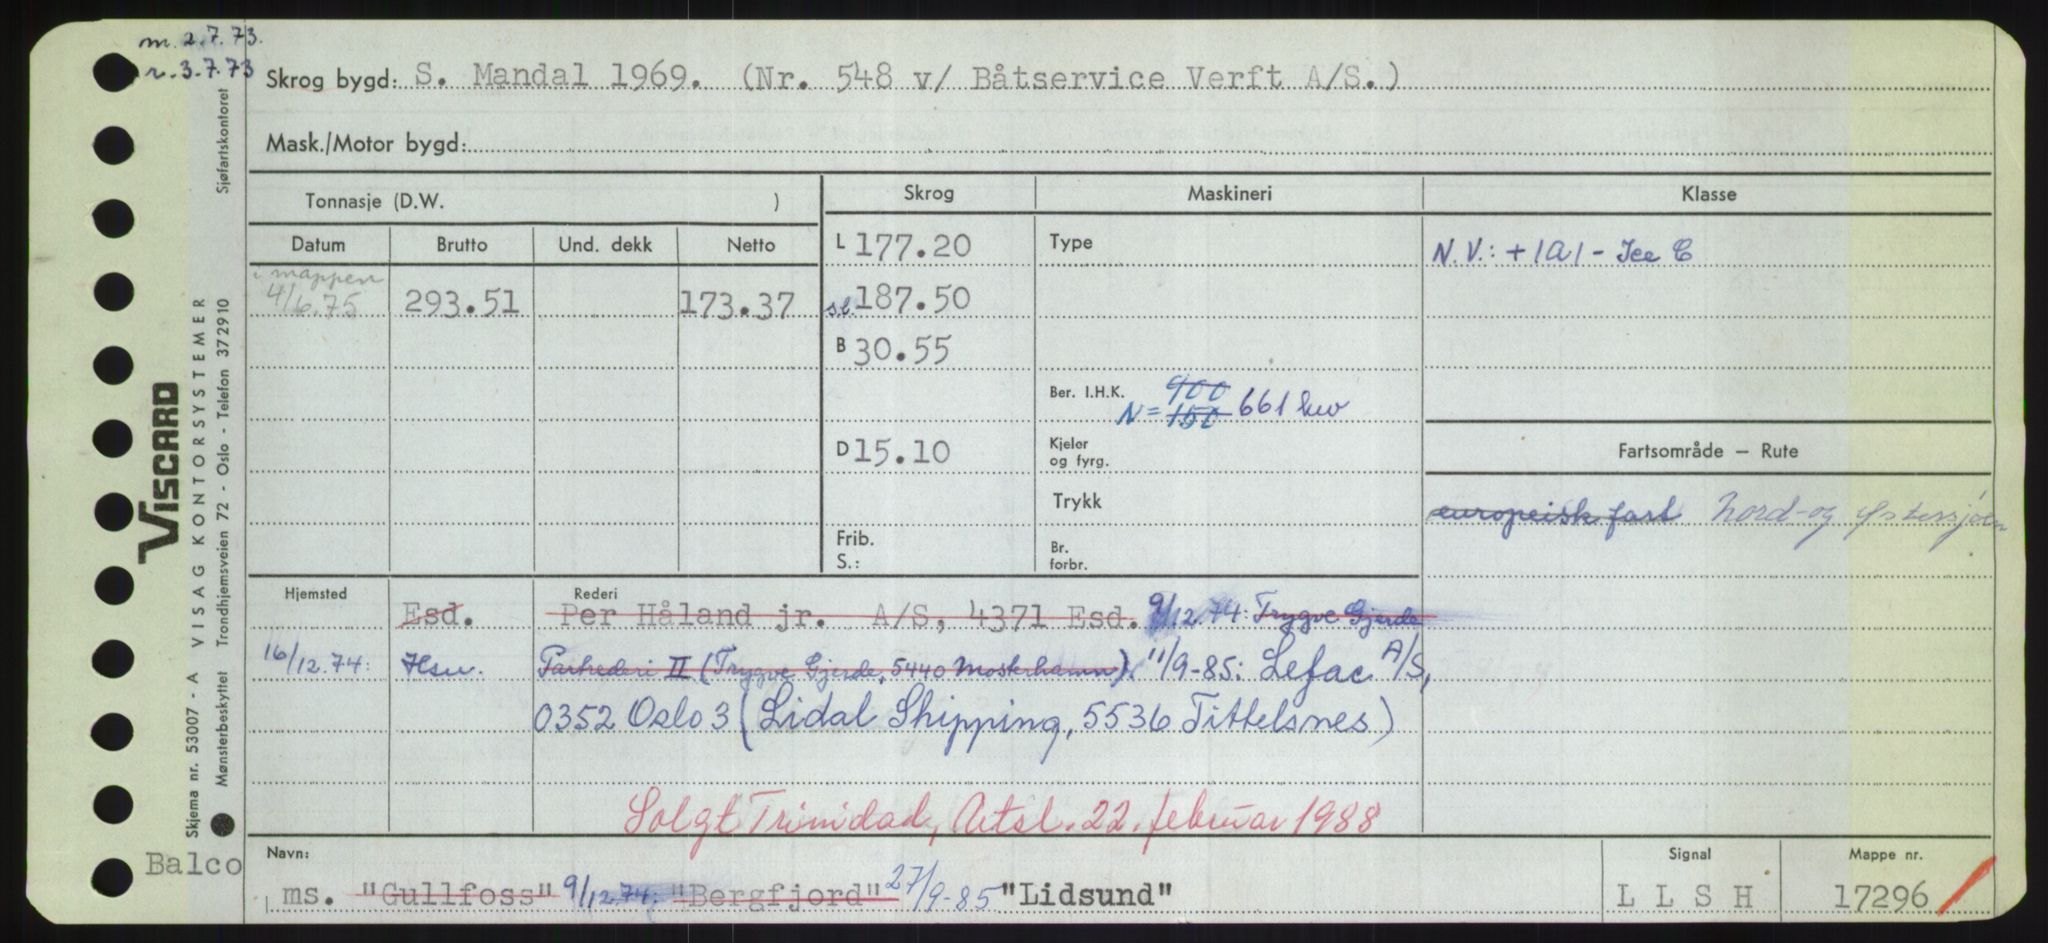 m. 2.7.73.
r. 3.7.73
Skrog bygd: S. Mandal 1969. (Nr. 548 v/ Båtservice Verft A/S.)
Mask./Motor bygd:
Tonnasje (D.W. )
Skrog
Maskineri
Klasse
Datum Brutto Und. dekk Netto
L 177.20
Type
N.V.: +1A1 - Ice C
i mappen
4/6.75 293.51 173.37
s.l. 187.50
B 30.55
Ber. I.H.K. 900
N= 150 661 kw
D 15.10
Kjeler
og fyrg.
Fartsområde — Rute
Trykk
europeisk fart Nord- og Østersjøen
Frib.
S.:
Br.
forbr.
Hjemsted
Rederi
Esd. Per Håland jr. A/S, 4371 Esd. 9/12.74: Trygve Gjerde
16/12.74: Hsu. Partrederi II (Trygve Gjerde, 5440 Mosterhamn). 11/9-85: Lefac A/S,
0352 Oslo 3 (Lidal Shipping, 5536 Tittelsnes)
Solgt Trinidad, Utsl. 22. februar 1988
Balco
Navn:
Signal
Mappe nr.
ms. "Gullfoss" 9/12.74: "Bergfjord" 27/9-85 "Lidsund"
L L S H
17296
VISCARD
Skjema nr. 53007 - A VISAG KONTORSYSTEMER
Mønsterbeskyttet Trondhjemsveien 72 - Oslo - Telefon 372910 Sjøfartskontoret